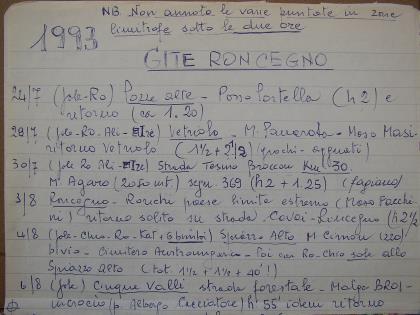 NB. Non annoto le varie puntate in zone
limitrofe sotto le due ore
1993
GITE RONCEGNO
24/7 (Jole-Ro) Pozze alte - Passo Portella (h 2) e
ritorno (ca 1.20)
28/7 (Jole-Ro-Ali-Ire) Vetriolo - M. Panarotta - Maso Masi-
ritorno Vetriolo (1½ + 2½) (funghi-appunti)
30/7 (Jole Ro Ali-Ire) Strada Tesino Broccon Km 30
M. Agaro (2050 mt) segn. 369 (h 2 + 1.25) (fagiano)
3/8 Roncegno - Ronchi paese limite estremo (Maso Facchi-
ni) ritorno solito su strada Cavai-Roncegno (h 2½
4/8 (Jole-Chio-Ro-Kat + 6 bimbi) Spiazzo Alto M Cimon (220)
bivio - Cimitero Austroungarico - Poi con Ro-Chio sole allo
Spiazzo alto (tot. 1½ + 1½ + 40')
6/8 (Jole) Cinque Valli strada forestale - Malga BROI-
incrocio (p. Albergo Cacciatore) h 55' idem ritorno